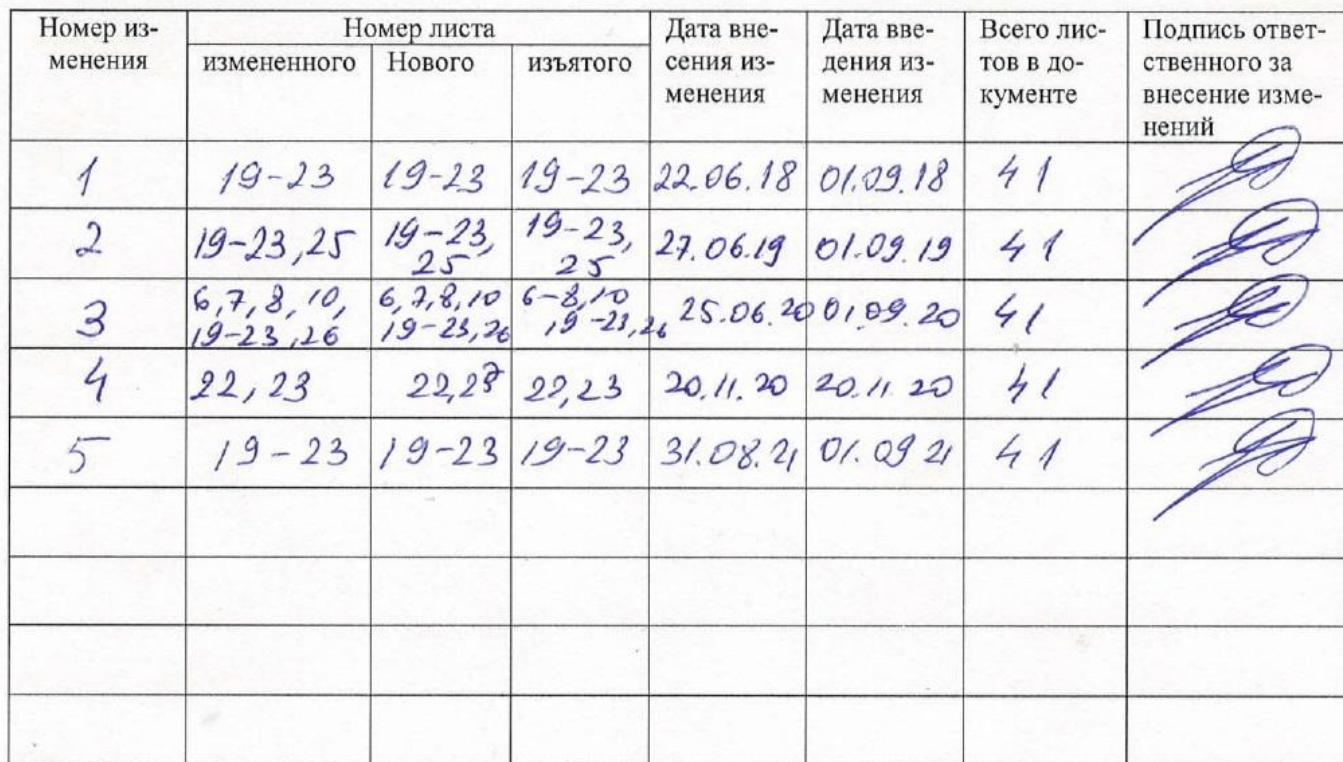 Номер из-
менения
Номер листа
измененного
Нового
изъятого
Дата вне-
сения из-
менения
Дата вве-
дения из-
менения
Всего лис-
тов в до-
кументе
Подпись ответ-
ственного за
внесение изме-
нений
1 19-23 19-23 19-23 22.06.18 01.09.18 41
2 19-23,25 19-23, 25 19-23, 25 27.06.19 01.09.19 41
3 6,7,8,10, 19-23,26 6,7,8,10 19-23,26 6-8,10 ,19-23,26 25.06.20 01.09.20 41
4 22,23 22,23 22,23 20.11.20 20.11.20 41
5 19-23 19-23 19-23 31.08.21 01.09 21 41